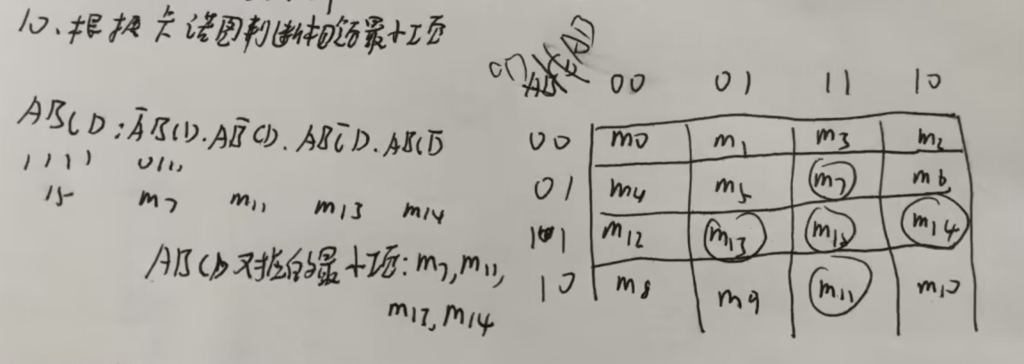 10、根据卡诺图判断相邻最小项
ABCD:A̅BCD.AB̅CD.ABC̅D.ABCD̅
1111 0111
15 m7 m11 m13 m14
ABCD对应的最小项:m7,m11,
m13,m14
00 01 11 10
00 m0 m1 m3 m2
01 m4 m5 m7 m6
11 m12 m13 m15 m14
10 m8 m9 m11 m10